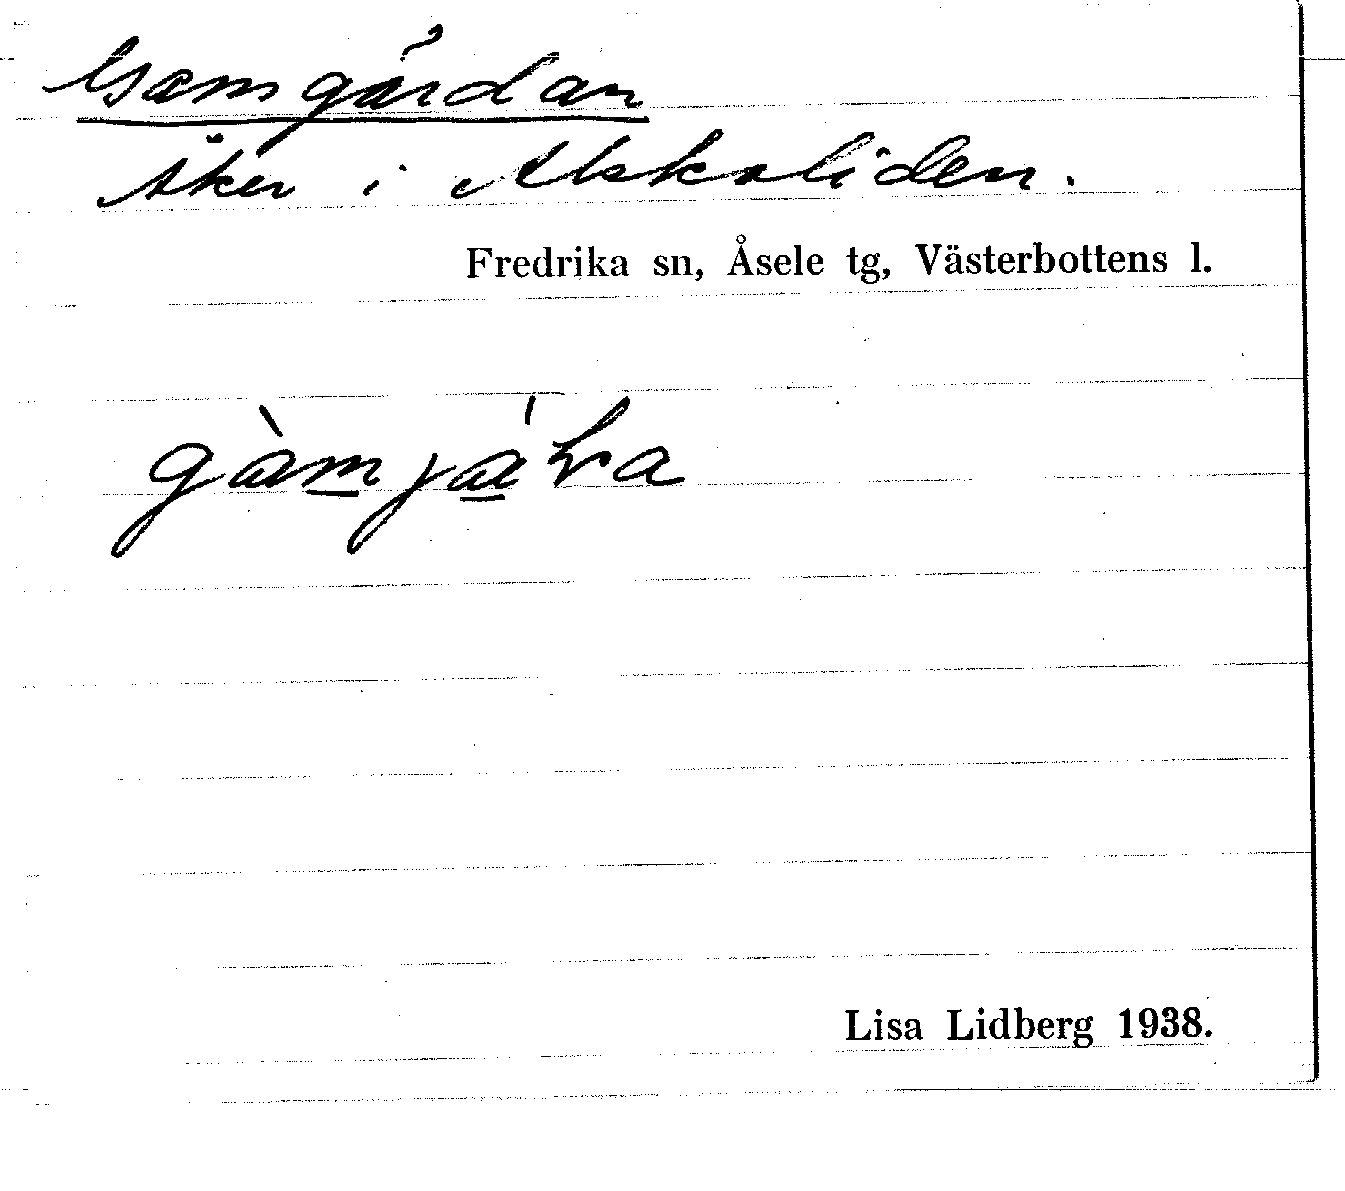 Gamgårdan
åker i Alskaliden.
Fredrika sn, Åsele tg, Västerbottens l.
Lisa Lidberg 1938.